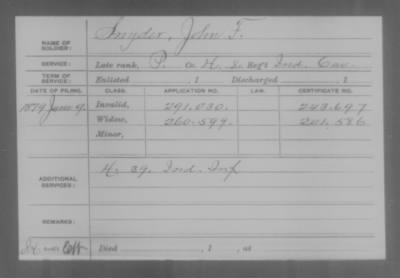 NAME OF SOLDIER: Snyder, John F.
SERVICE: Late rank, P. Co. H, 8 Reg't Ind. Cav.
TERM OF SERVICE: Enlisted , 1 Discharged , 1
DATE OF FILING. CLASS. APPLICATION NO. LAW. CERTIFICATE NO.
1879 June 9. Invalid, 291,030. 243,697
Widow, 260,599. 201,586
Minor,
ADDITIONAL SERVICES: H. 39. Ind. Inf
REMARKS:
Died , 1 , at